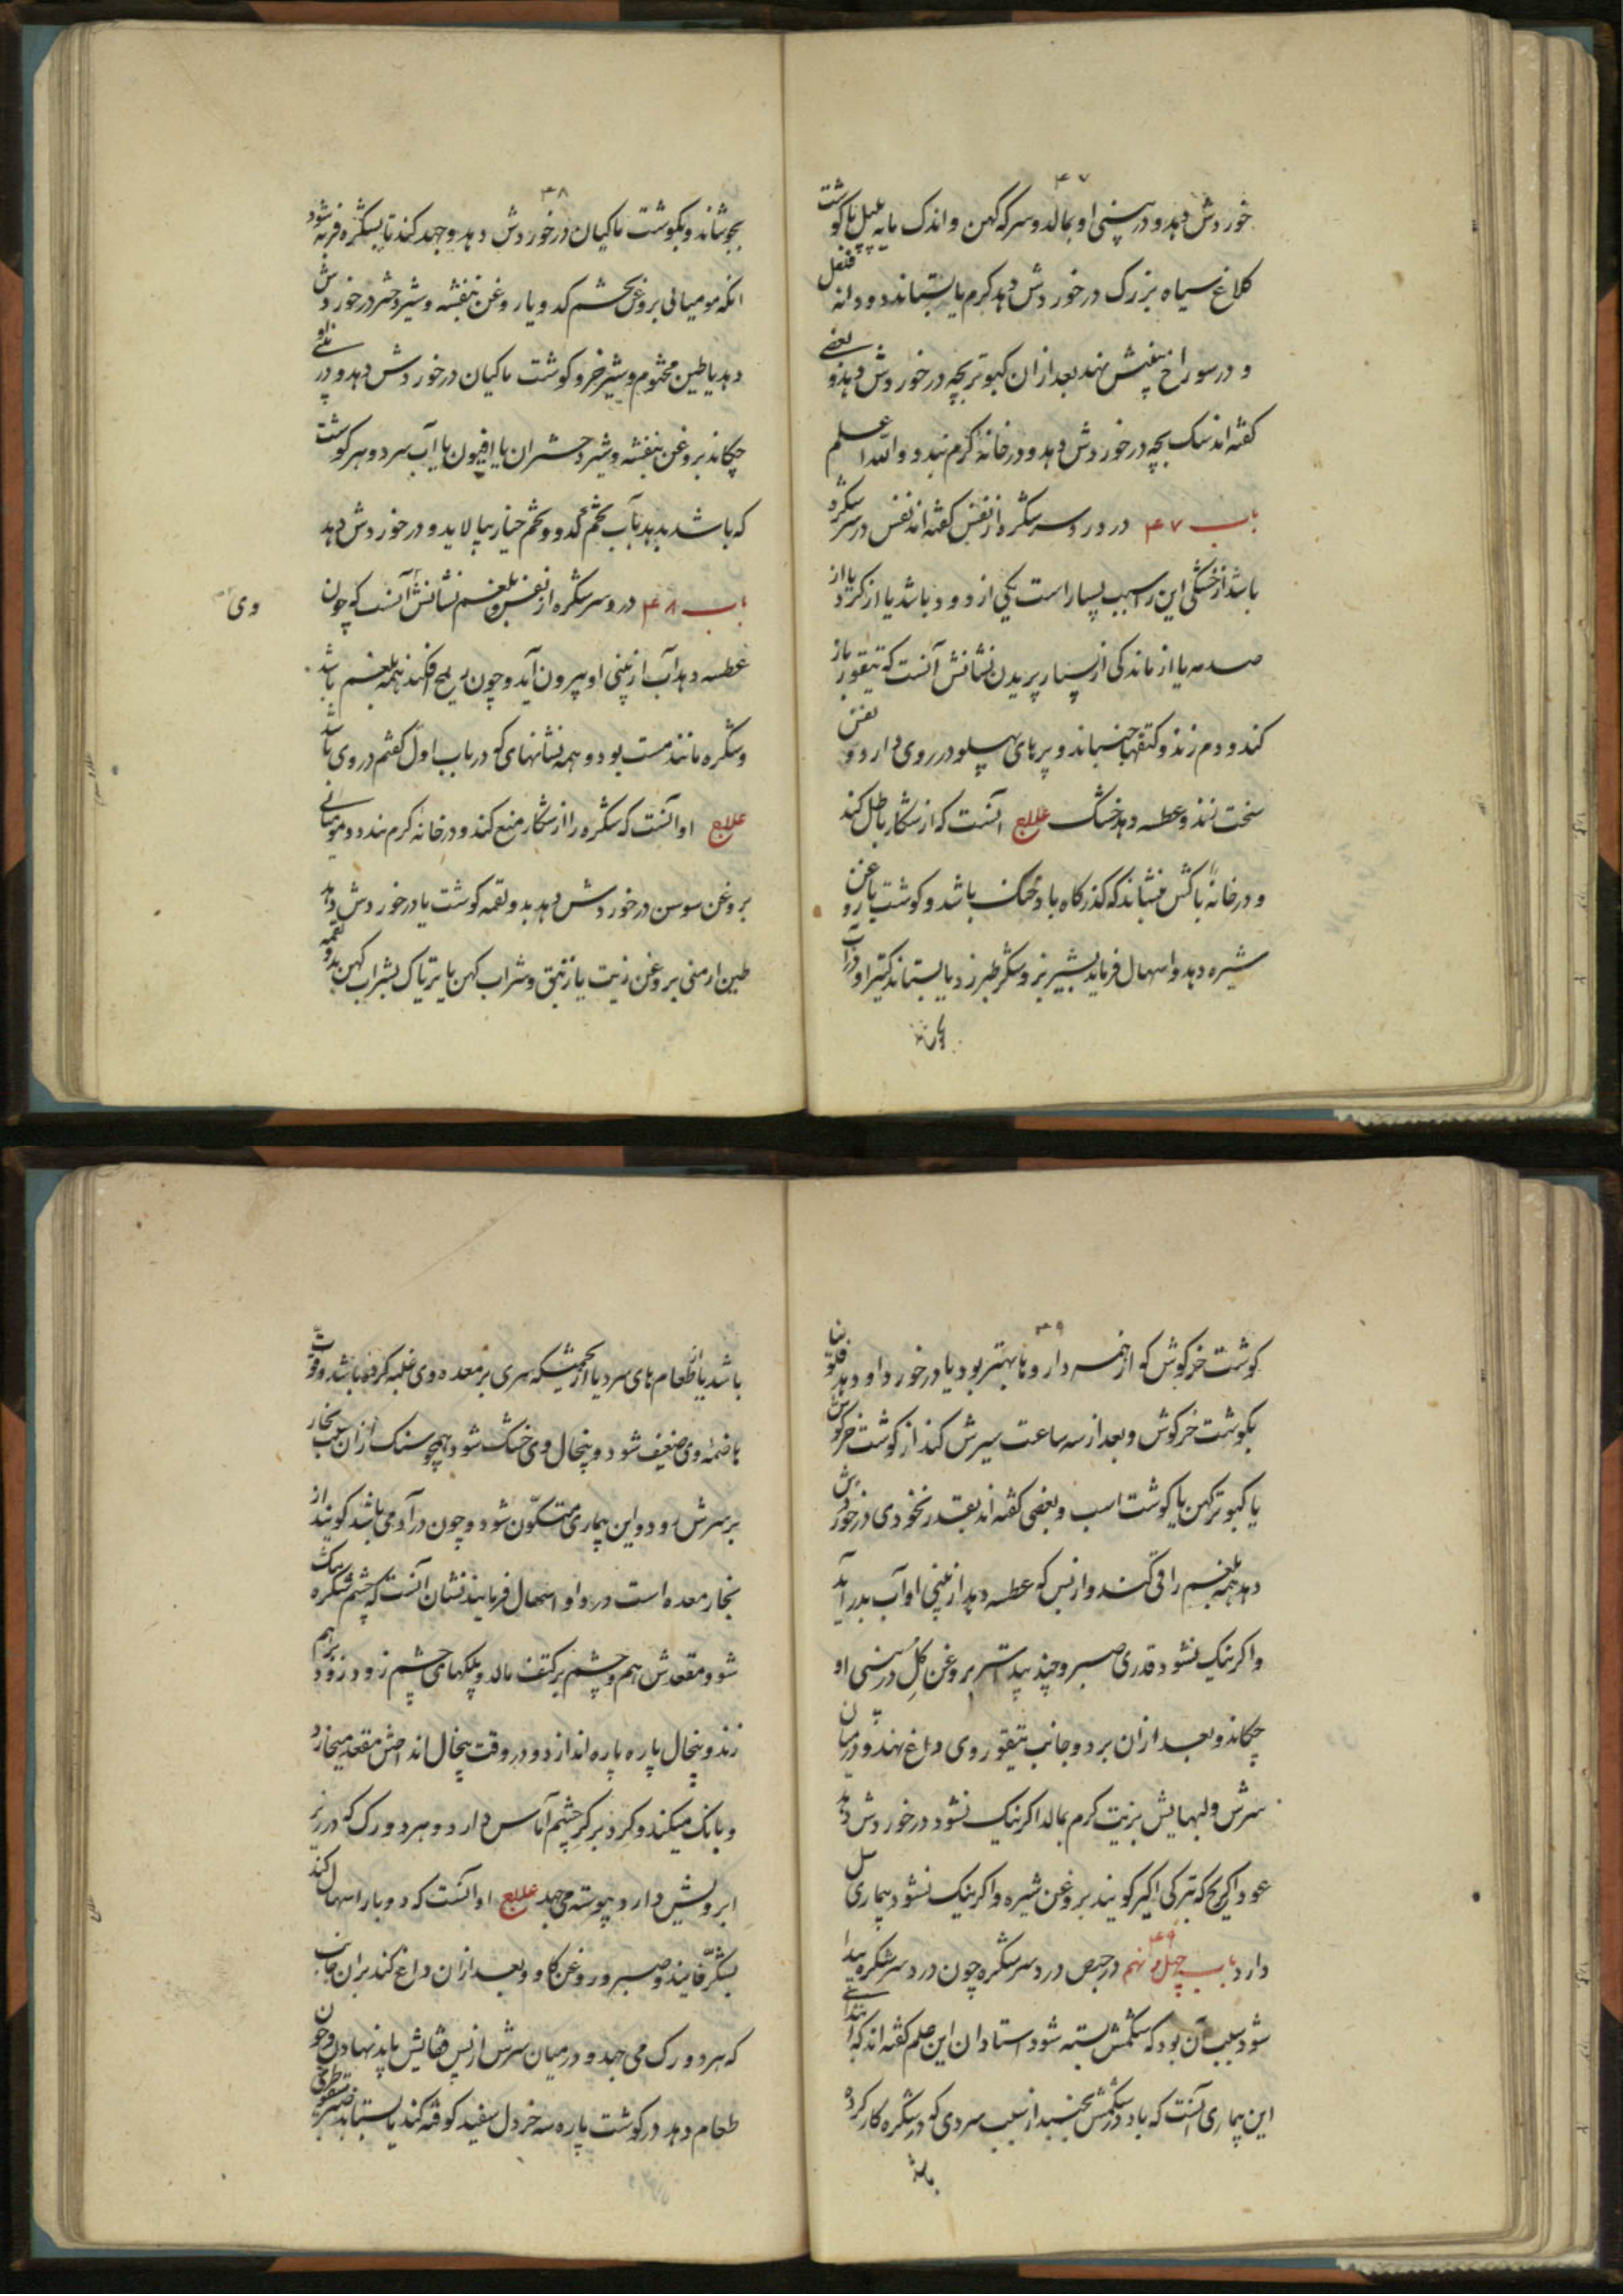 ۴۷
خوردش دهد و در بینی او بمالد و سرکه کهن و اندک مایه پلپل با گوشت
کلاغ سیاه بزرگ در خوردش دهد گرم یا بستاند دو دانه فلفل
و در سوراخ بینیش نهد بعد ازان کبوتر بچه در خوردش دهد و بعضی
گفته اند سک بچه در خوردش دهد و در خانهٔ گرم بندد والله اعلم
باب ۴۷ در درد سر شکره از نفس گفته اند نفس در سر شکره
باشد از خشکی این را سبب بسیار است یکی از دود باشد یا از گرد یا از
صدمه یا از ماندگی از بسیار پریدن نشانش آنست که تیقور باز
کند و دم زند و کتفها جنباند و پرهای پهلو در روی دارد و نفس
سخت زند و عطسه دهد خشک علاج آنست که از شکار باطل کند
و در خانهٔ باکش منشاند که گذرگاه باد خنک باشد و گوشت با روغن
شیره دهد و اسهال فرماید بشیر بز و شکر طبرزد یا بستاند کتیرا و در آب
۴۸
بجوشاند و بگوشت ماکیان در خوردش دهد و جهد کند تا شکره فربه شود
انکه مومیائی بروغن تخم کدو یا روغن بنفشه و شیر دختر در خوردش
دهد یا طین مختوم و شیر خر و گوشت ماکیان در خوردش دهد و در بینی او
چکاند بروغن بنفشه و شیر دختران یا افیون با آب سرد و هر گوشت
که باشد بدهد بآب تخم کدو و تخم خیار بپالاید و در خوردش دهد
باب ۴۸ درد سر شکره از نفس بلغم نشانش آنست که چون
وی
عطسه دهد آب از بینی او بیرون آید و چون ریح افکند همه بلغم باشد
و شکره مانند مست بود و همه نشانهای که در باب اول گفتم در وی باشد
علاج او آنست که شکره را از شکار منع کند و در خانهٔ گرم بندد و مومیائی
بروغن سوسن در خوردش دهد بدو لقمه گوشت یا در خوردش دهد
طین ارمنی بروغن زیت یا زنبق و شراب کهن یا تریاک بشراب کهن بدو لقمه
۴۹
گوشت خرگوش که از همه داروها بهتر بود یا در خورد او دهد
بگوشت خرگوش و بعد از سه ساعت سیرش کند از گوشت خرگوش
یا کبوتر کهن یا گوشت اسب و بعضی گفته اند بقدر نخودی در خوردش
دهد همه بلغم را قی کند و از پس که عطسه دهد از بینی او آب بدر آید
و اگر نیک نشود قدری صبر و چند بیداستر بروغن گل در بینی او
چکاند و بعد ازان بر دو جانب تیقور وی داغ نهند و در میان
سرش و لبهایش بزیت گرم بمالد اگر نیک نشود در خوردش دهد
عود اکریح که بترکی اکیر گویند بروغن شیره و اگر نیک نشود بیماری سل
دارد باب چهل و نهم ۴۹ در جبص درد سر شکره چون درد سر شکره پیدا
شود سبب آن بود که شکمش بسته شود استادان این علم گفته اند که ابتدای
این بیماری آنست که باد در شکمش بجنبد از سبب سردی که در شکره کار کرده
باشد
باشد یا از طعام های سرد یا از تخمه که سردی بر معده وی غلبه کرده باشد و قوت
هاضمهٔ وی ضعیف شود و پیخال وی خشک شود همچو سنگ ازان سبب بخار
بر سرش رود و این بیماری متکون شود و چون در آدمی باشد گویند از
بخار معده است درد او اسهال فرمایند نشان آنست که چشم شکره
شود و مقعدش هم و چشم بر کتف مالد و پلکهای چشم زود زود بر هم
زند و پیخال پاره پاره اندازد و در وقت پیخال انداختن مقعد میخارد
و بانگ میکند و گرد بر گرد چشم آماس دارد و هر دو رگ که در زیر
ابرویش دارد پیوسته می جهد علاج او آنست که دو بار اسهال کند
بشکر فانید و صبر و روغن گاو و بعد ازان داغ کند بران جانب
که هر دو رگ می جهد و در میان سرش از پس قفایش باید نهادن و چون
طعام دهد در گوشت پاره سه خردل سفید کوفته کند یا بستاند صبر سقوطری